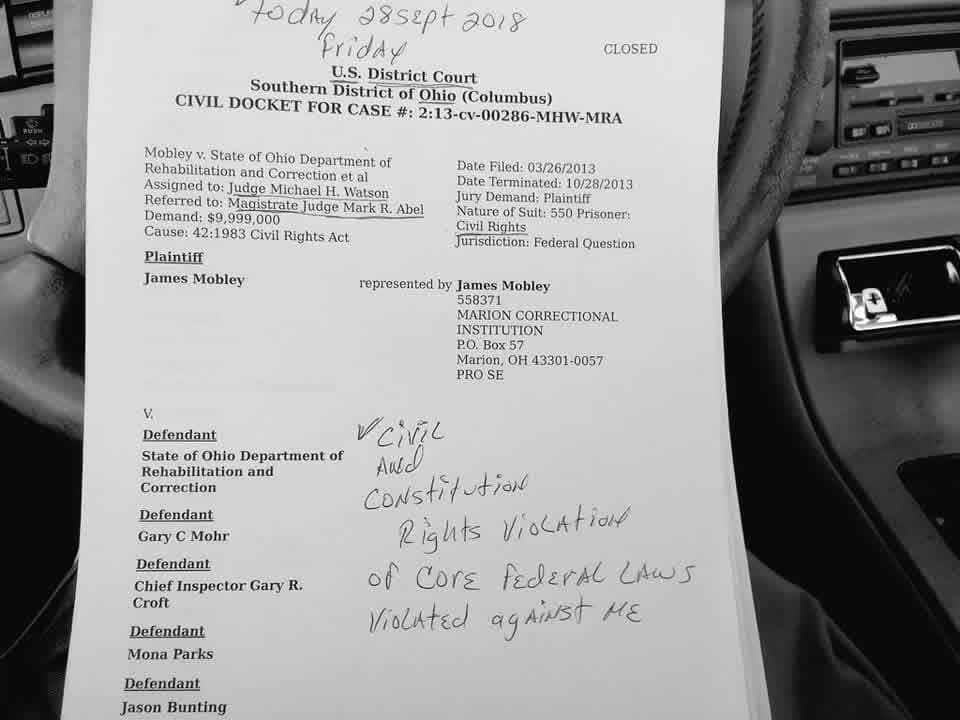 today 28 Sept 2018
Friday
CLOSED
U.S. District Court
Southern District of Ohio (Columbus)
CIVIL DOCKET FOR CASE #: 2:13-cv-00286-MHW-MRA
Mobley v. State of Ohio Department of
Rehabilitation and Correction et al
Assigned to: Judge Michael H. Watson
Referred to: Magistrate Judge Mark R. Abel
Demand: $9,999,000
Cause: 42:1983 Civil Rights Act
Date Filed: 03/26/2013
Date Terminated: 10/28/2013
Jury Demand: Plaintiff
Nature of Suit: 550 Prisoner:
Civil Rights
Jurisdiction: Federal Question
Plaintiff
James Mobley
represented by James Mobley
558371
MARION CORRECTIONAL
INSTITUTION
P.O. Box 57
Marion, OH 43301-0057
PRO SE
V.
Defendant
State of Ohio Department of
Rehabilitation and
Correction
Defendant
Gary C Mohr
Defendant
Chief Inspector Gary R.
Croft
Defendant
Mona Parks
Defendant
Jason Bunting
✓ Civil
And
CONSTITUTION
Rights Violation
of CORE FEDERAL LAWS
Violated against ME
PUSH